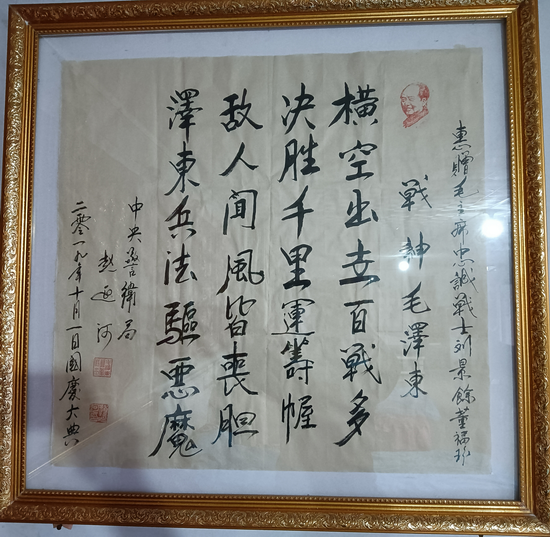 惠贈毛主席忠誠戰士刘景餘董福珍
戰神毛澤東
橫空出世百戰多
决胜千里運籌幄
敌人闻風皆喪胆
澤東兵法驅惡魔
中央警衛局
赵
二零一九年十月一日國慶大典